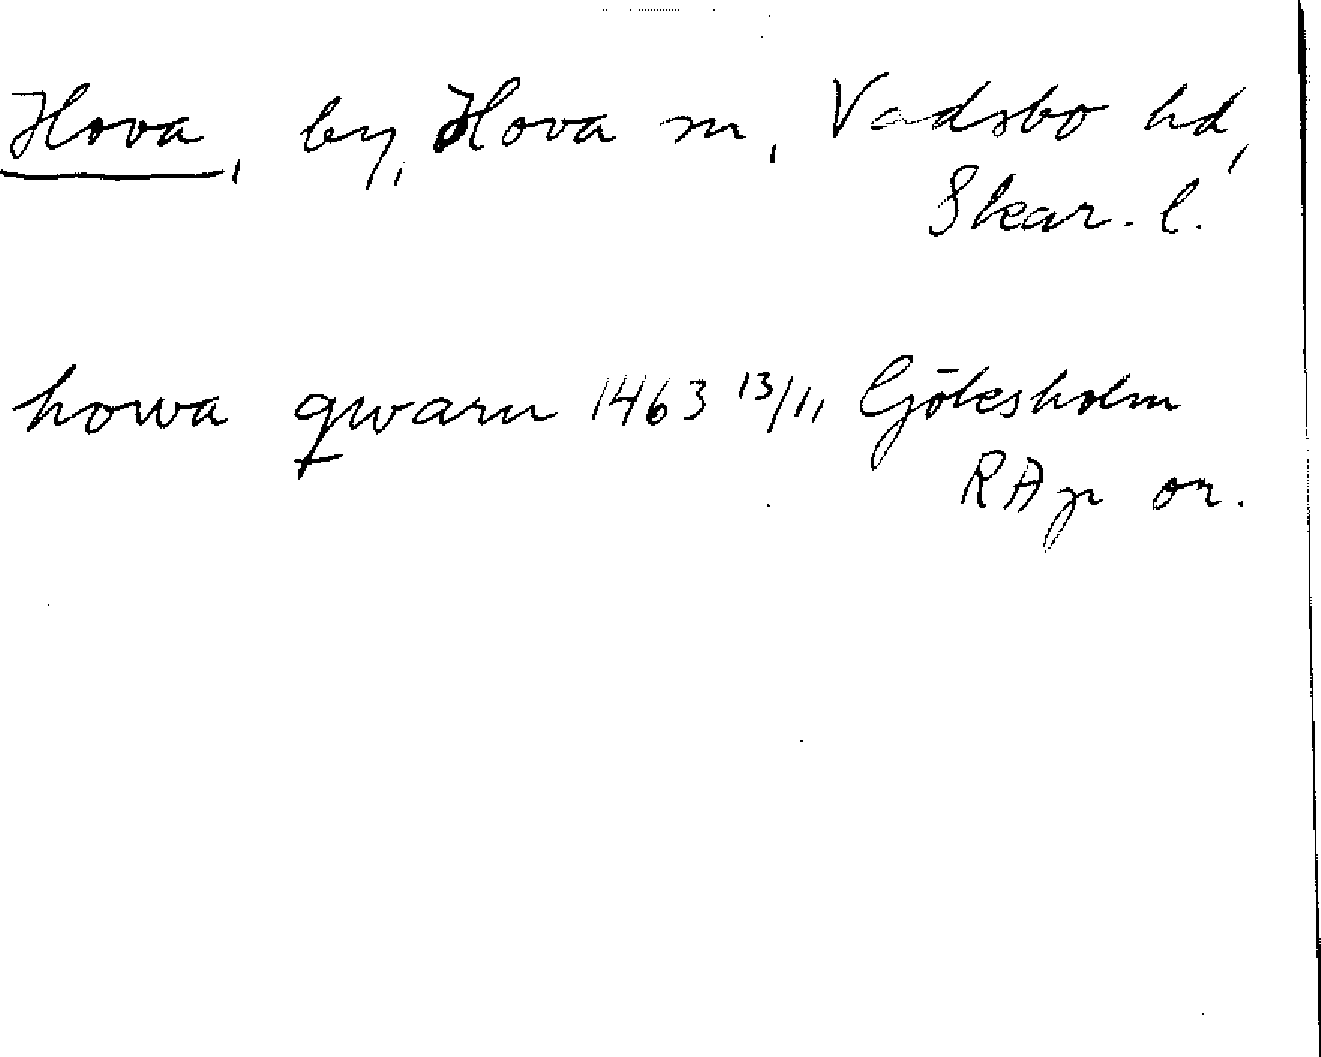 Hova, by, Hova sn, Vadsbo hd,
Skar. l.
howa qwarn 1463 13/11 Göksholm
RAp or.